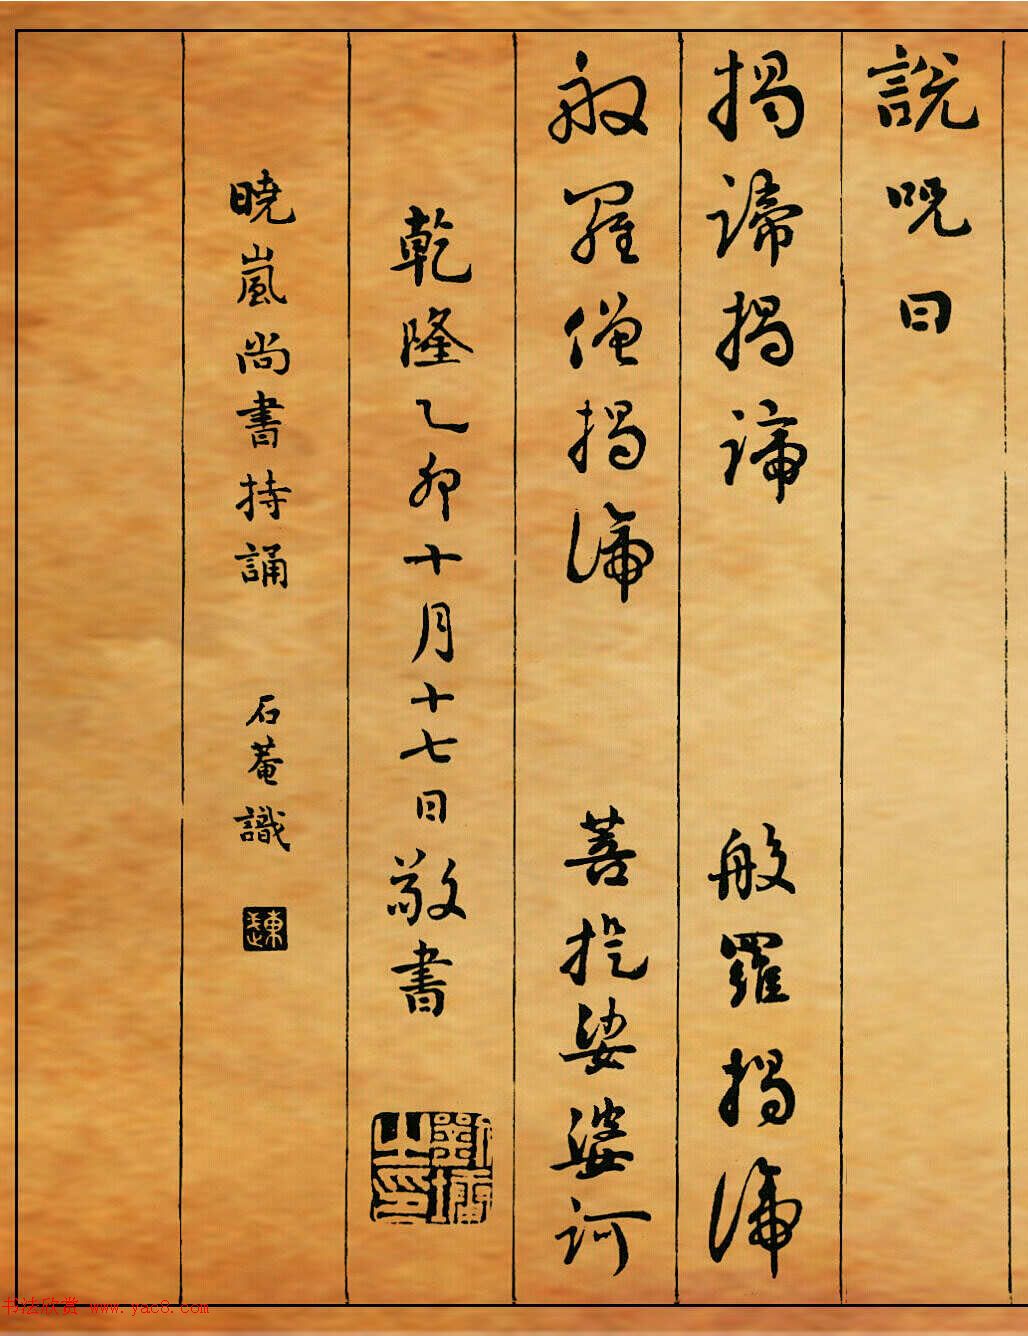 說呪曰
揭諦揭諦 般羅揭諦
般羅僧揭諦 菩提娑婆訶
乾隆乙卯十月十七日敬書
劉墉之印
曉嵐尚書持誦 石菴識
书法欣赏 www.yac8.com